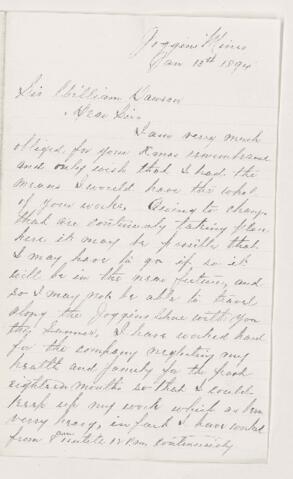 Joggins Mines
Jan 13th 1894
Sir William Dawson
Dear Sir
I am very much
obliged for your Xmas remembrance
and only wish that I had the
means I would have the whole
of your works. Owing to changes
that are continualy taking place
here it may be possible that
I may have to go if so it
will be in the near future, and
so I may not be able to travel
along the Joggins Shore with you
this Summer. I have worked hard
for the company neglecting my
health and family for the past
eighteen months so that I could
keep up my work which as been
very heavy, in fact I have worked
from 7 am until 12 P.m. continuously